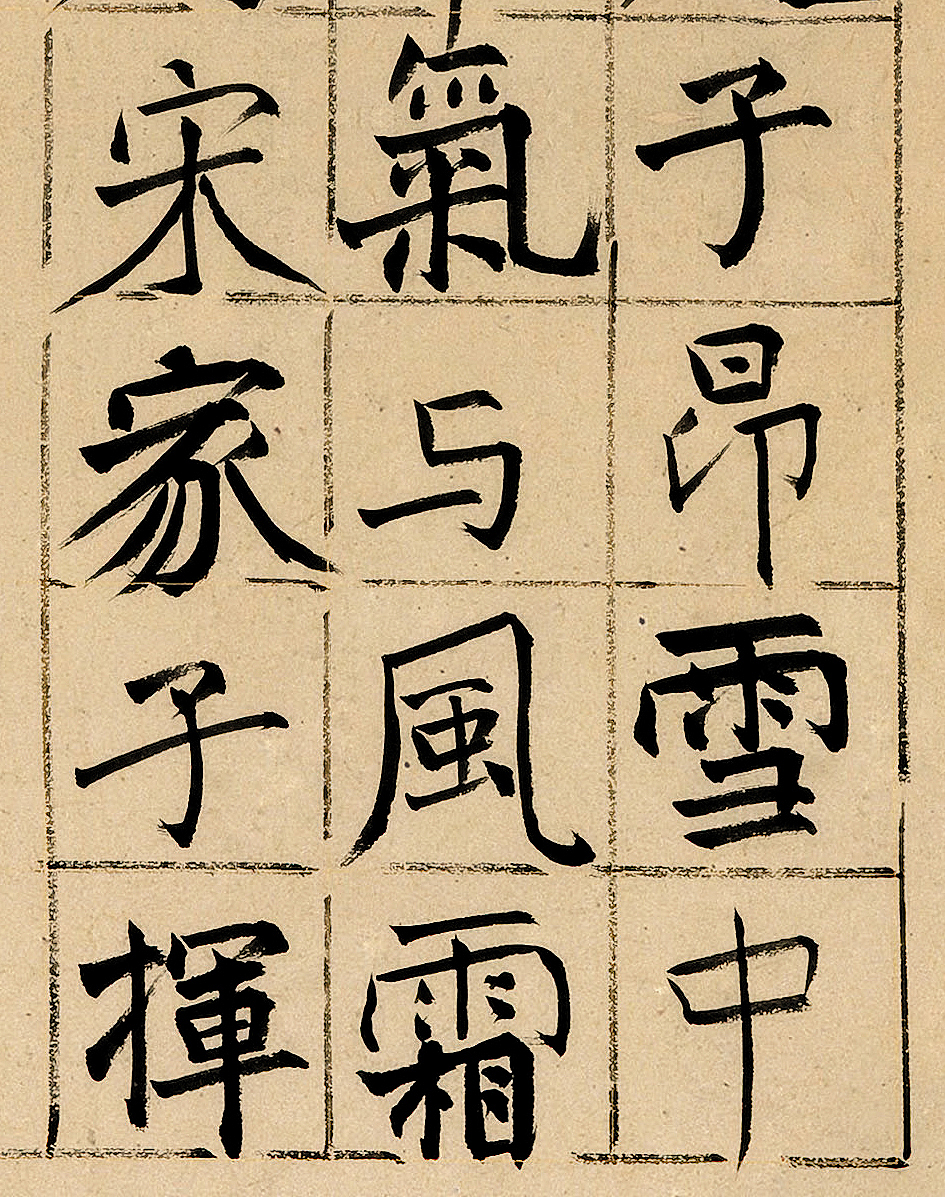 子昂雪中
氣与風霜
宋家子揮